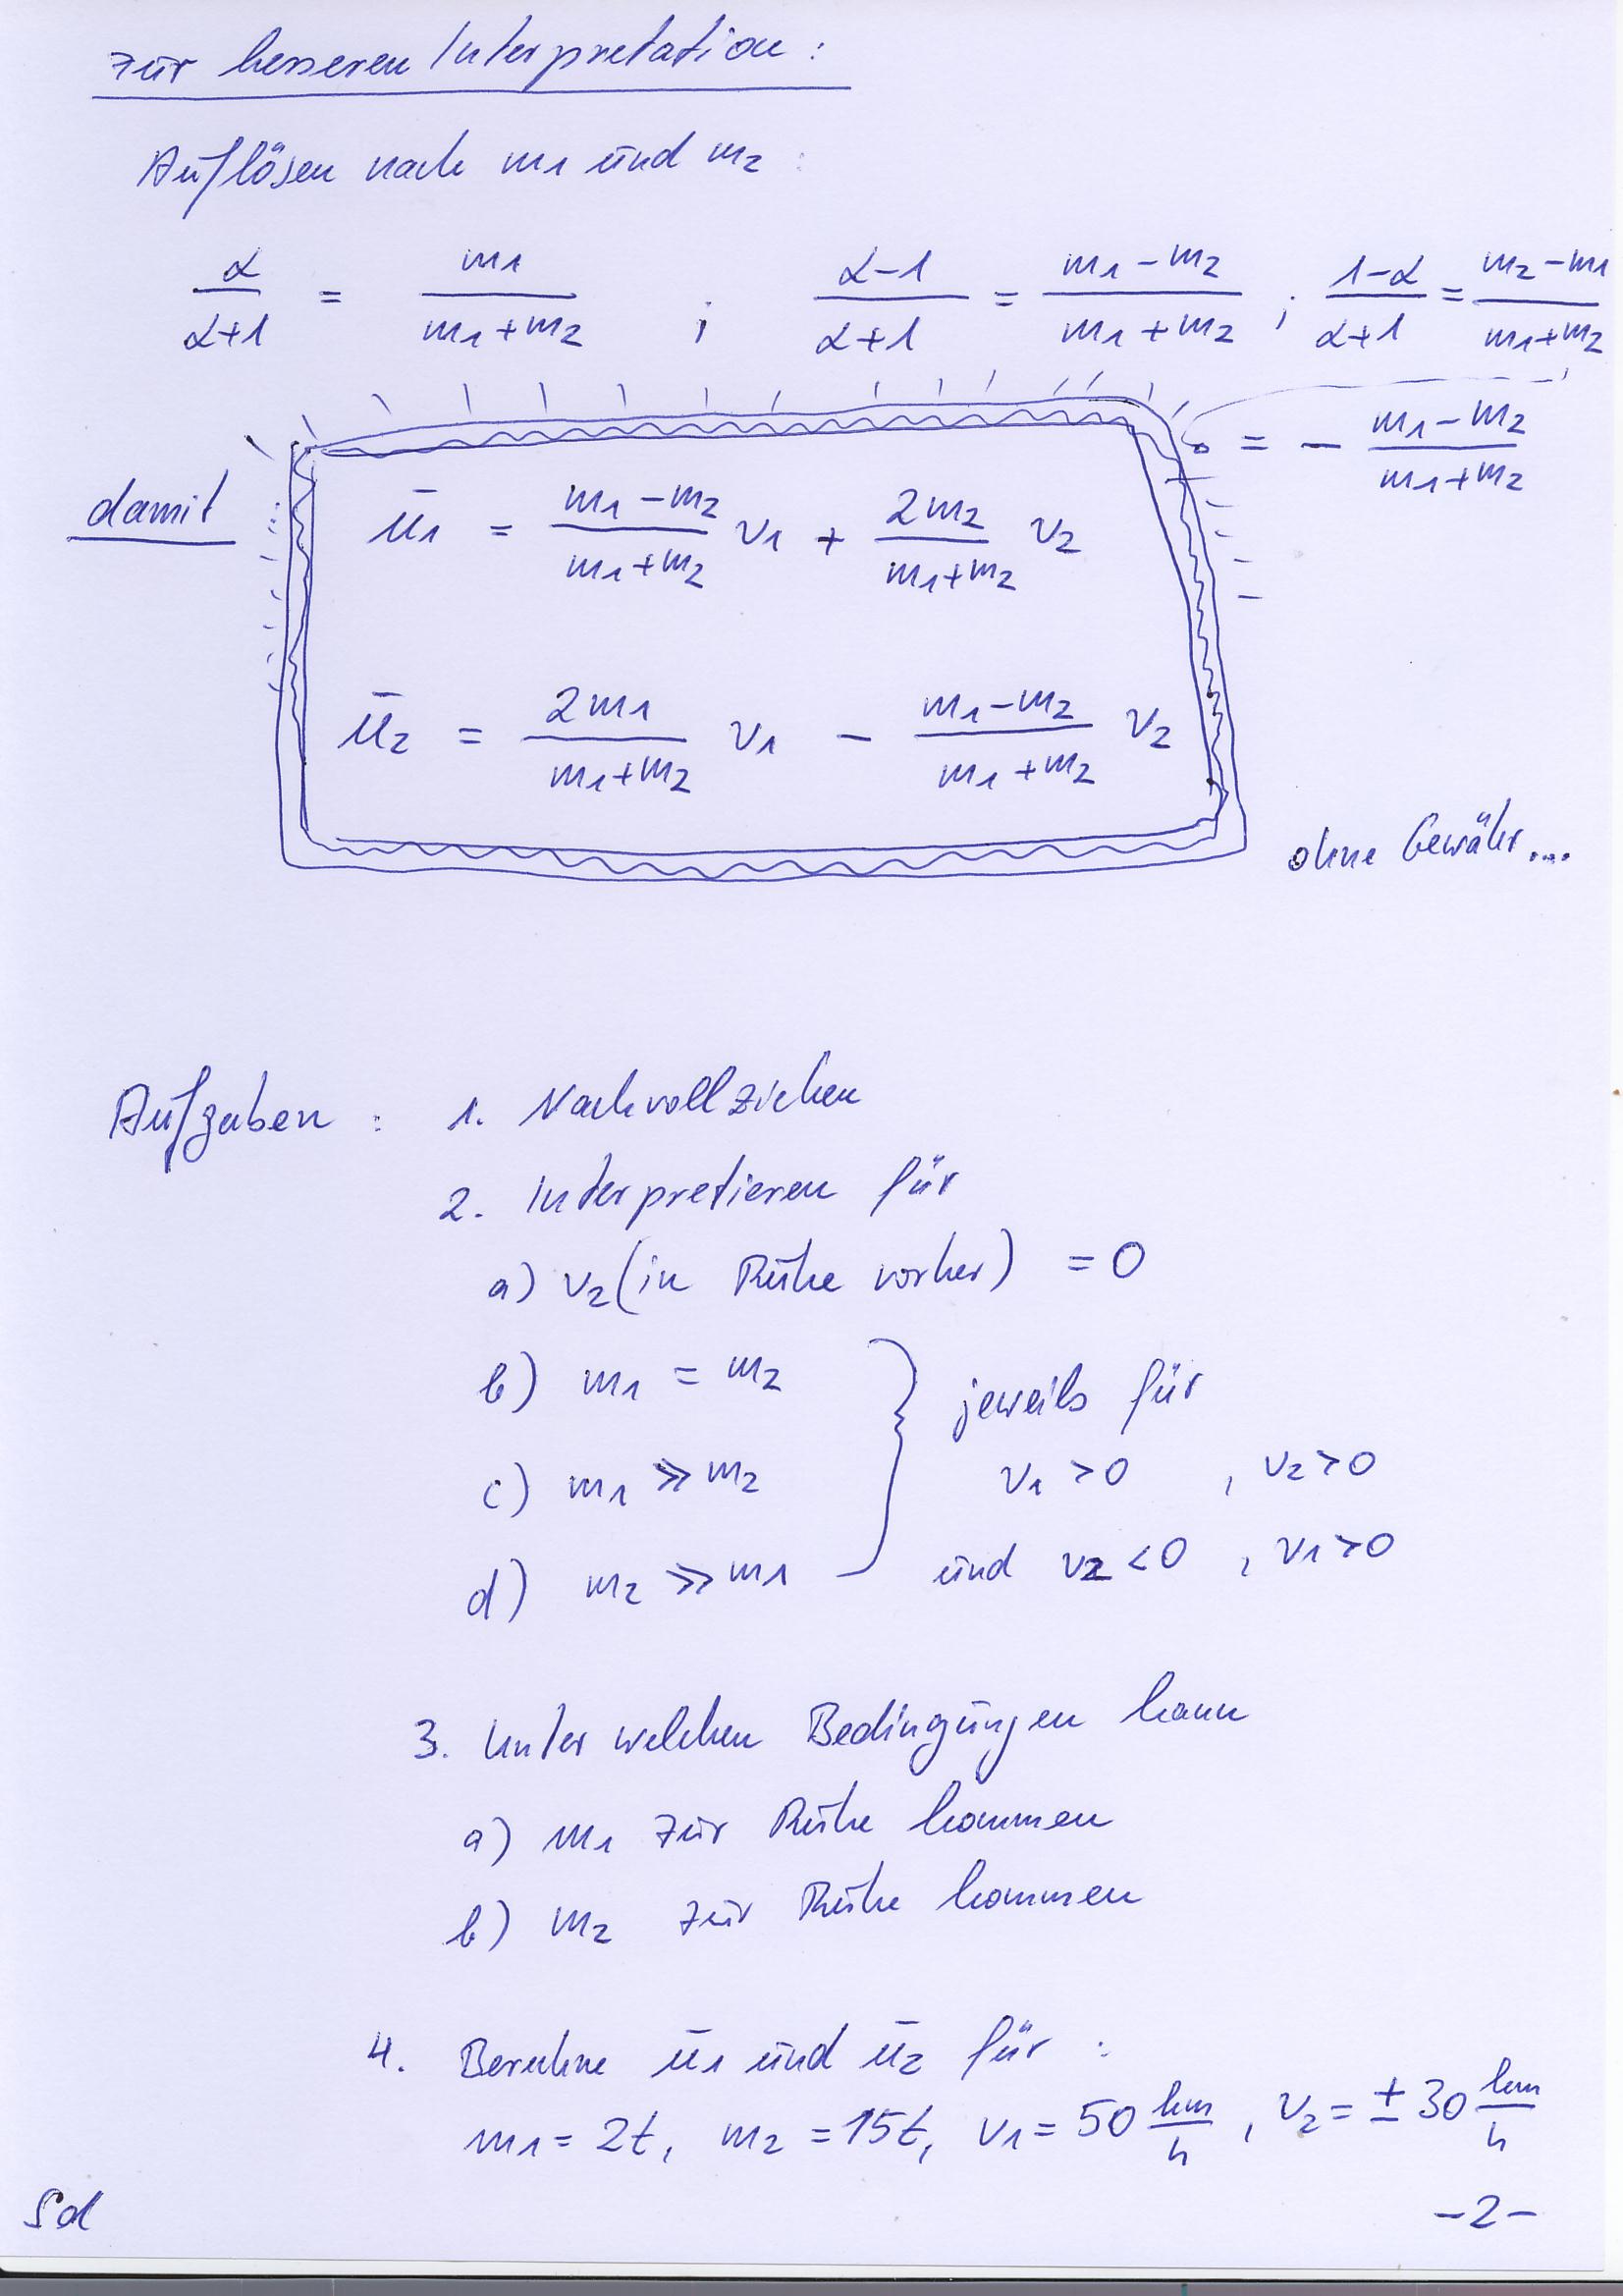 Zur besseren Interpretation:
Auflösen nach m1 und m2:
α/(α+1) = m1/(m1+m2) ; (α-1)/(α+1) = (m1-m2)/(m1+m2) ; (1-α)/(α+1) = (m2-m1)/(m1+m2)
= - (m1-m2)/(m1+m2)
damit
ū1 = (m1-m2)/(m1+m2) v1 + 2m2/(m1+m2) v2
ū2 = 2m1/(m1+m2) v1 - (m1-m2)/(m1+m2) v2
ohne Gewähr...
Aufgaben: 1. Nachvollziehen
2. Interpretieren für
a) v2 (in Ruhe vorher) = 0
b) m1 = m2
jeweils für
c) m1 ≫ m2
v1 > 0 , v2 > 0
d) m2 ≫ m1
und v2 < 0 , v1 > 0
3. Unter welchen Bedingungen kann
a) m1 zur Ruhe kommen
b) m2 zur Ruhe kommen
4. Berechne ū1 und ū2 für :
m1 = 2t, m2 = 15t, v1 = 50 km/h , v2 = ± 30 km/h
Sd
-2-